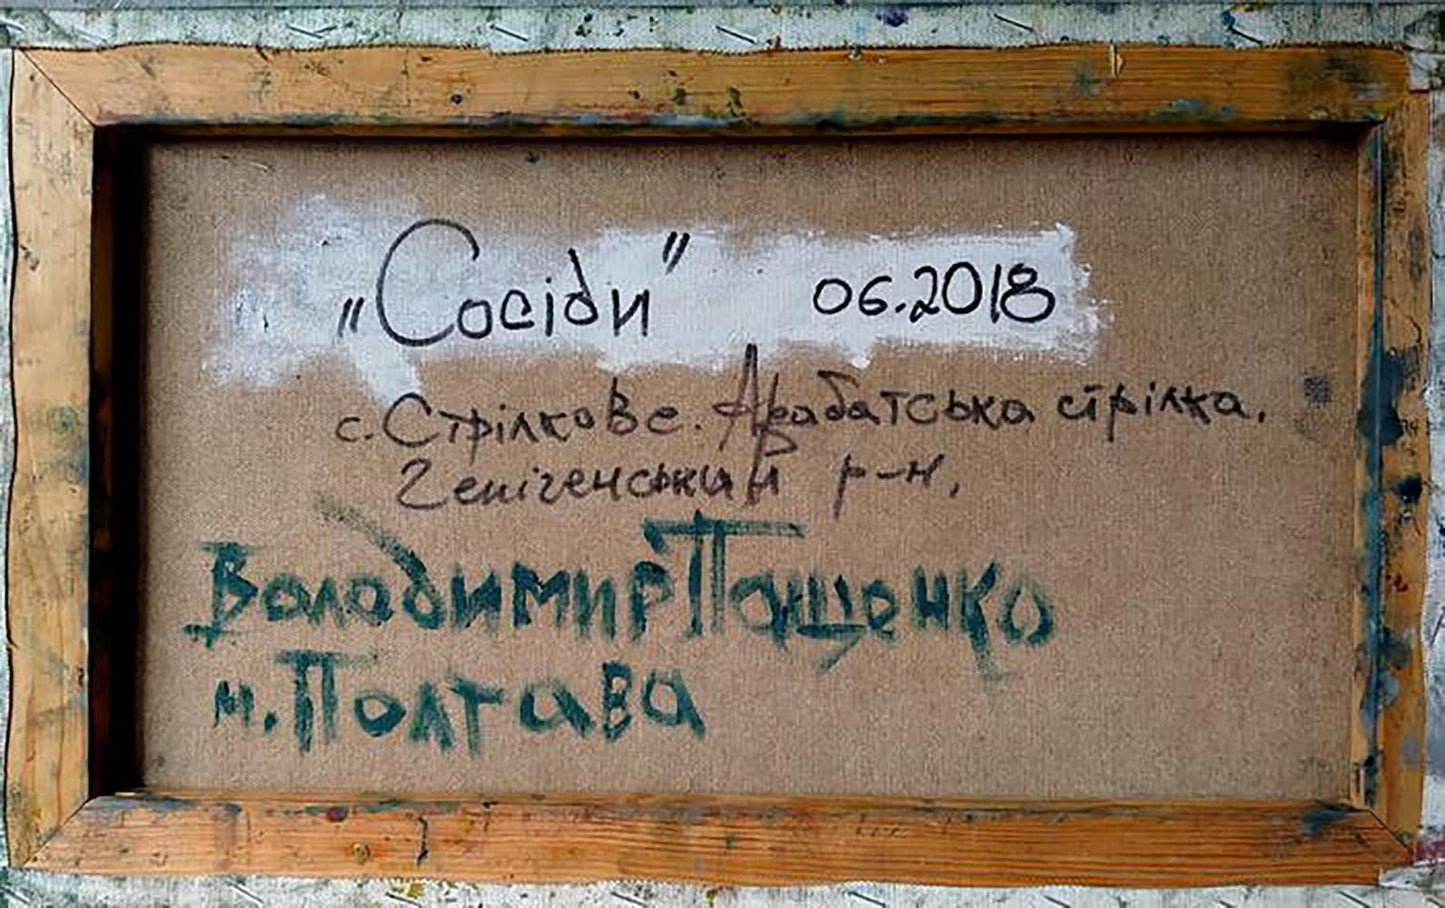 „Сосіди" 06.2018
с. Стрілкове. Арабатська стрілка.
Генігенський р-н.
Володимир Пащенко
м. Полтава